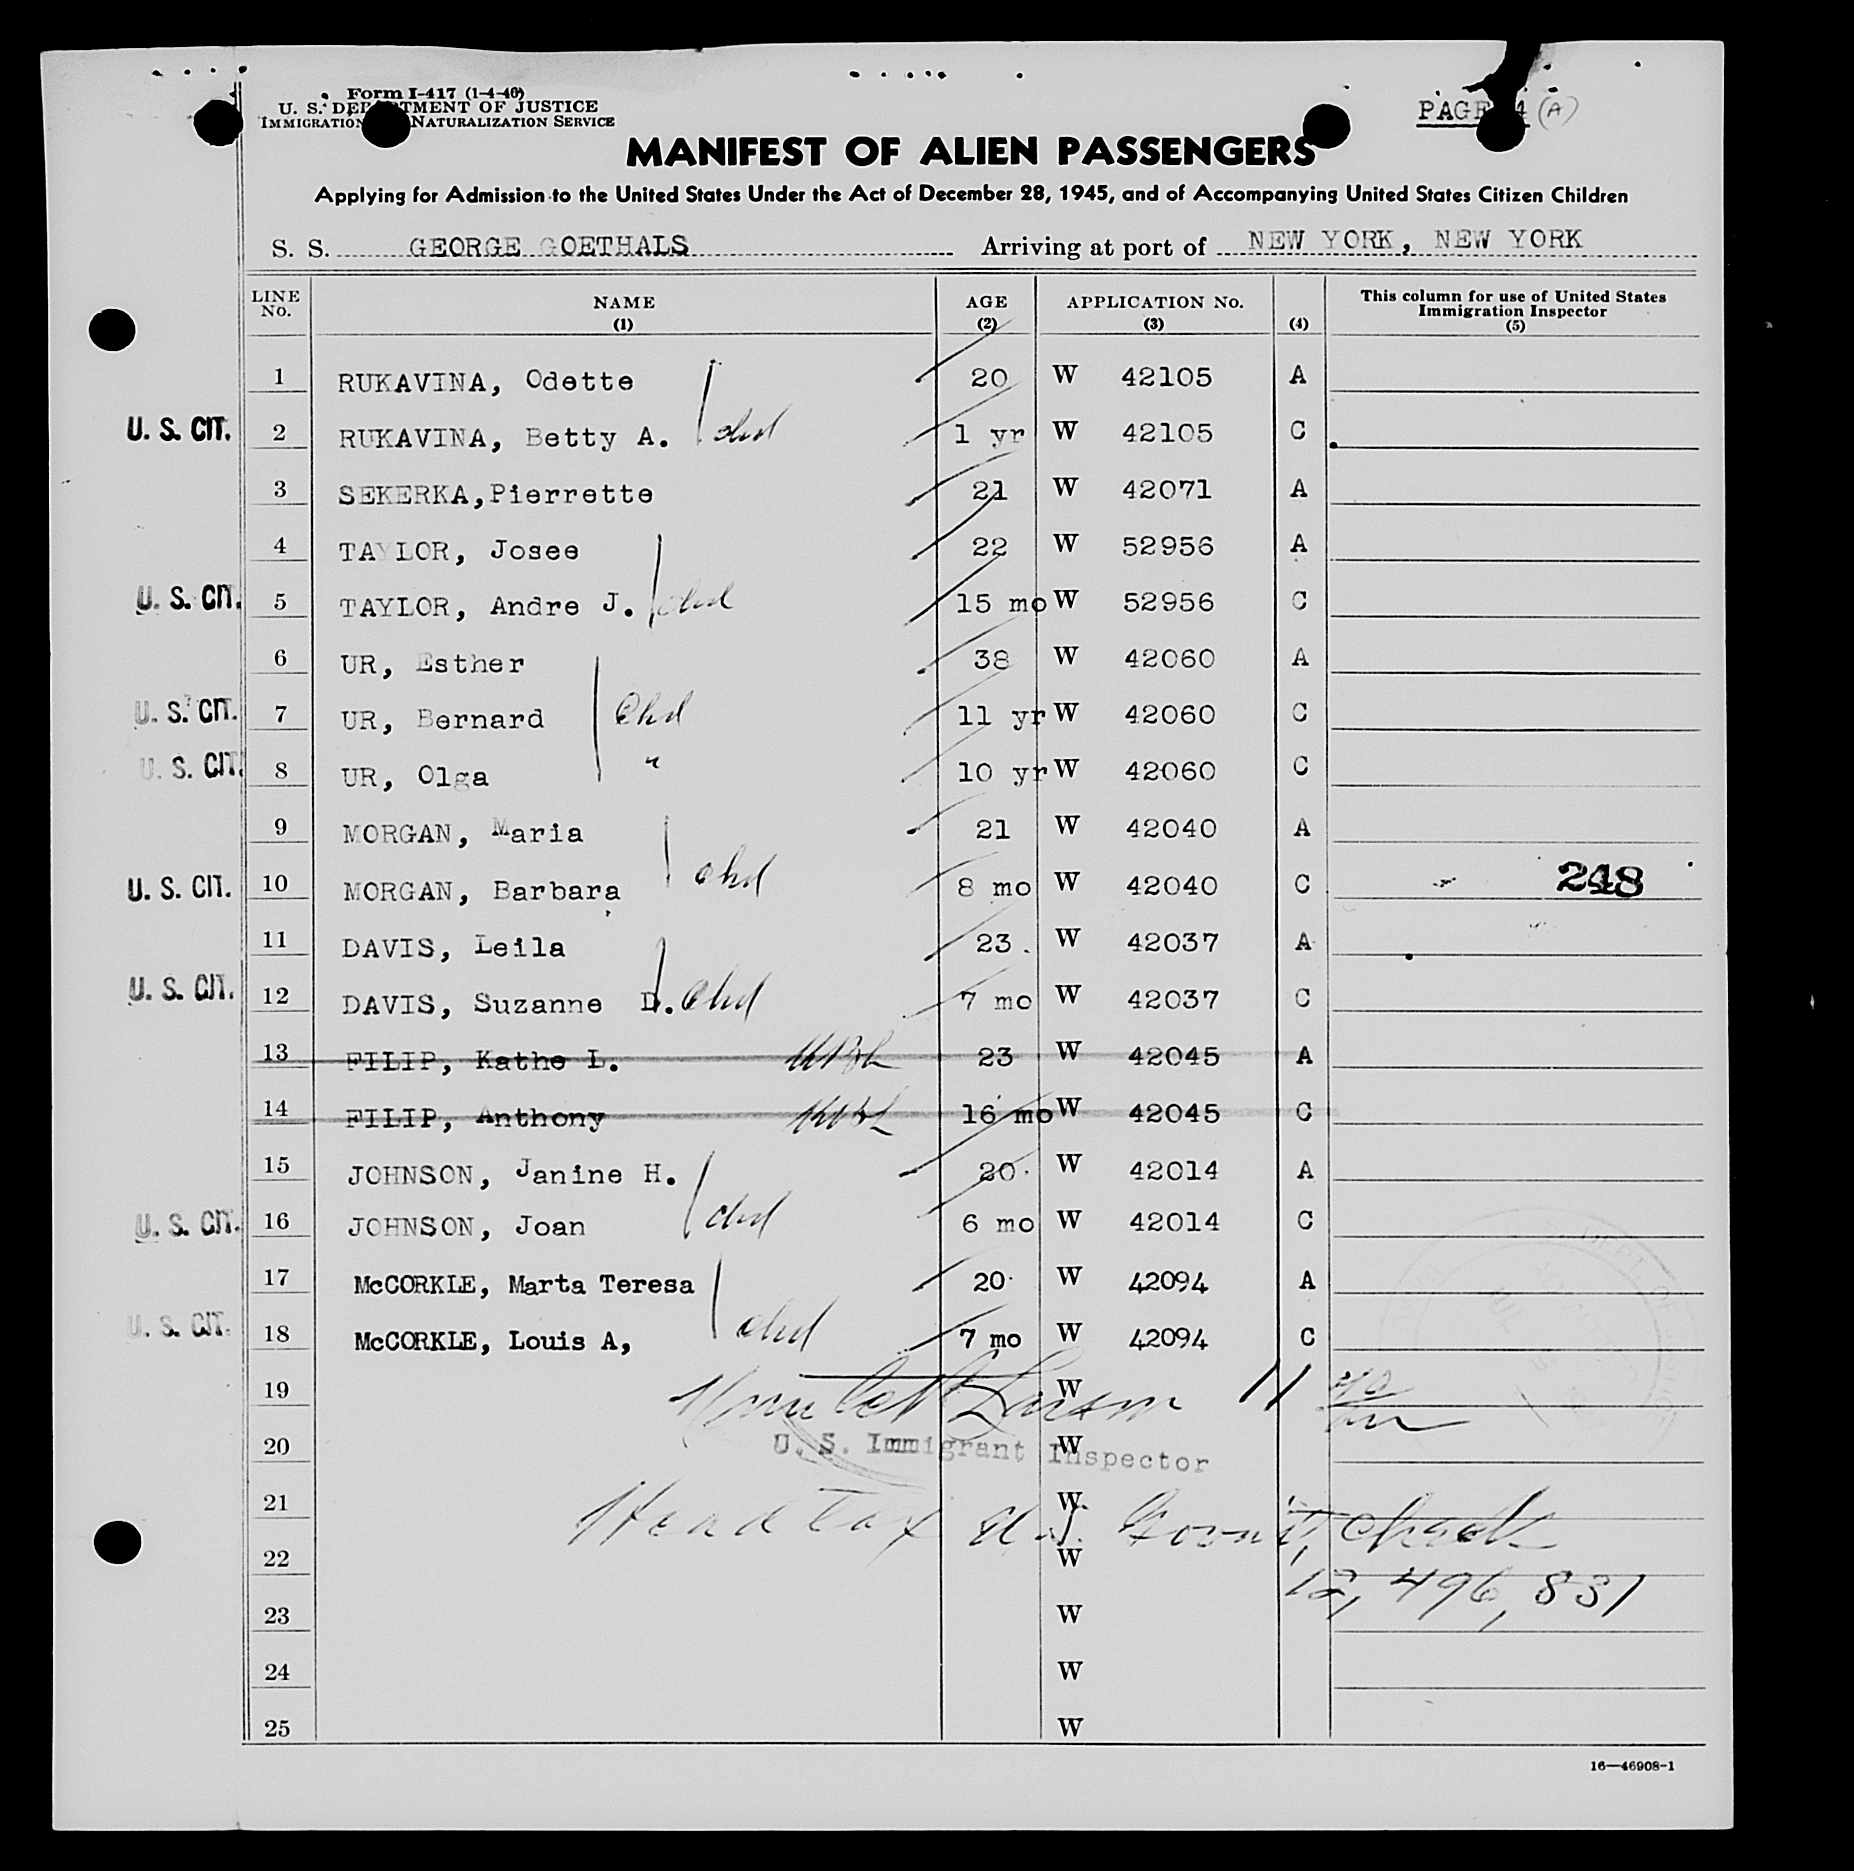 Form I-417 (1-4-46)
U. S. DEPARTMENT OF JUSTICE
IMMIGRATION NATURALIZATION SERVICE
PAGE 4 (A)
MANIFEST OF ALIEN PASSENGERS
Applying for Admission to the United States Under the Act of December 28, 1945, and of Accompanying United States Citizen Children
S. S. GEORGE GOETHALS Arriving at port of NEW YORK, NEW YORK
LINE No. NAME (1) AGE (2) APPLICATION No. (3) (4) This column for use of United States Immigration Inspector (5)
1 RUKAVINA, Odette 20 W 42105 A
U. S. CIT. 2 RUKAVINA, Betty A. chd 1 yr W 42105 C
3 SEKERKA,Pierrette 21 W 42071 A
4 TAYLOR, Josee 22 W 52956 A
U. S. CIT. 5 TAYLOR, Andre J. chd 15 mo W 52956 C
6 UR, Esther 38 W 42060 A
U. S. CIT. 7 UR, Bernard Chd 11 yr W 42060 C
U. S. CIT. 8 UR, Olga " 10 yr W 42060 C
9 MORGAN, Maria 21 W 42040 A
U. S. CIT. 10 MORGAN, Barbara chd 8 mo W 42040 C 248
11 DAVIS, Leila 23 W 42037 A
U. S. CIT. 12 DAVIS, Suzanne D. Chd 7 mo W 42037 C
13 FILIP, Kathe L. 23 W 42045 A
14 FILIP, Anthony 16 mo W 42045 C
15 JOHNSON, Janine H. 20 W 42014 A
U. S. CIT. 16 JOHNSON, Joan chd 6 mo W 42014 C
17 McCORKLE, Marta Teresa 20 W 42094 A
U. S. CIT. 18 McCORKLE, Louis A, chd 7 mo W 42094 C
19 W
20 U. S. Immigrant Inspector W
21 Head Tax U.S. Govn't, Check W
22 W 12,496,831
23 W
24 W
25 W
16—46908-1